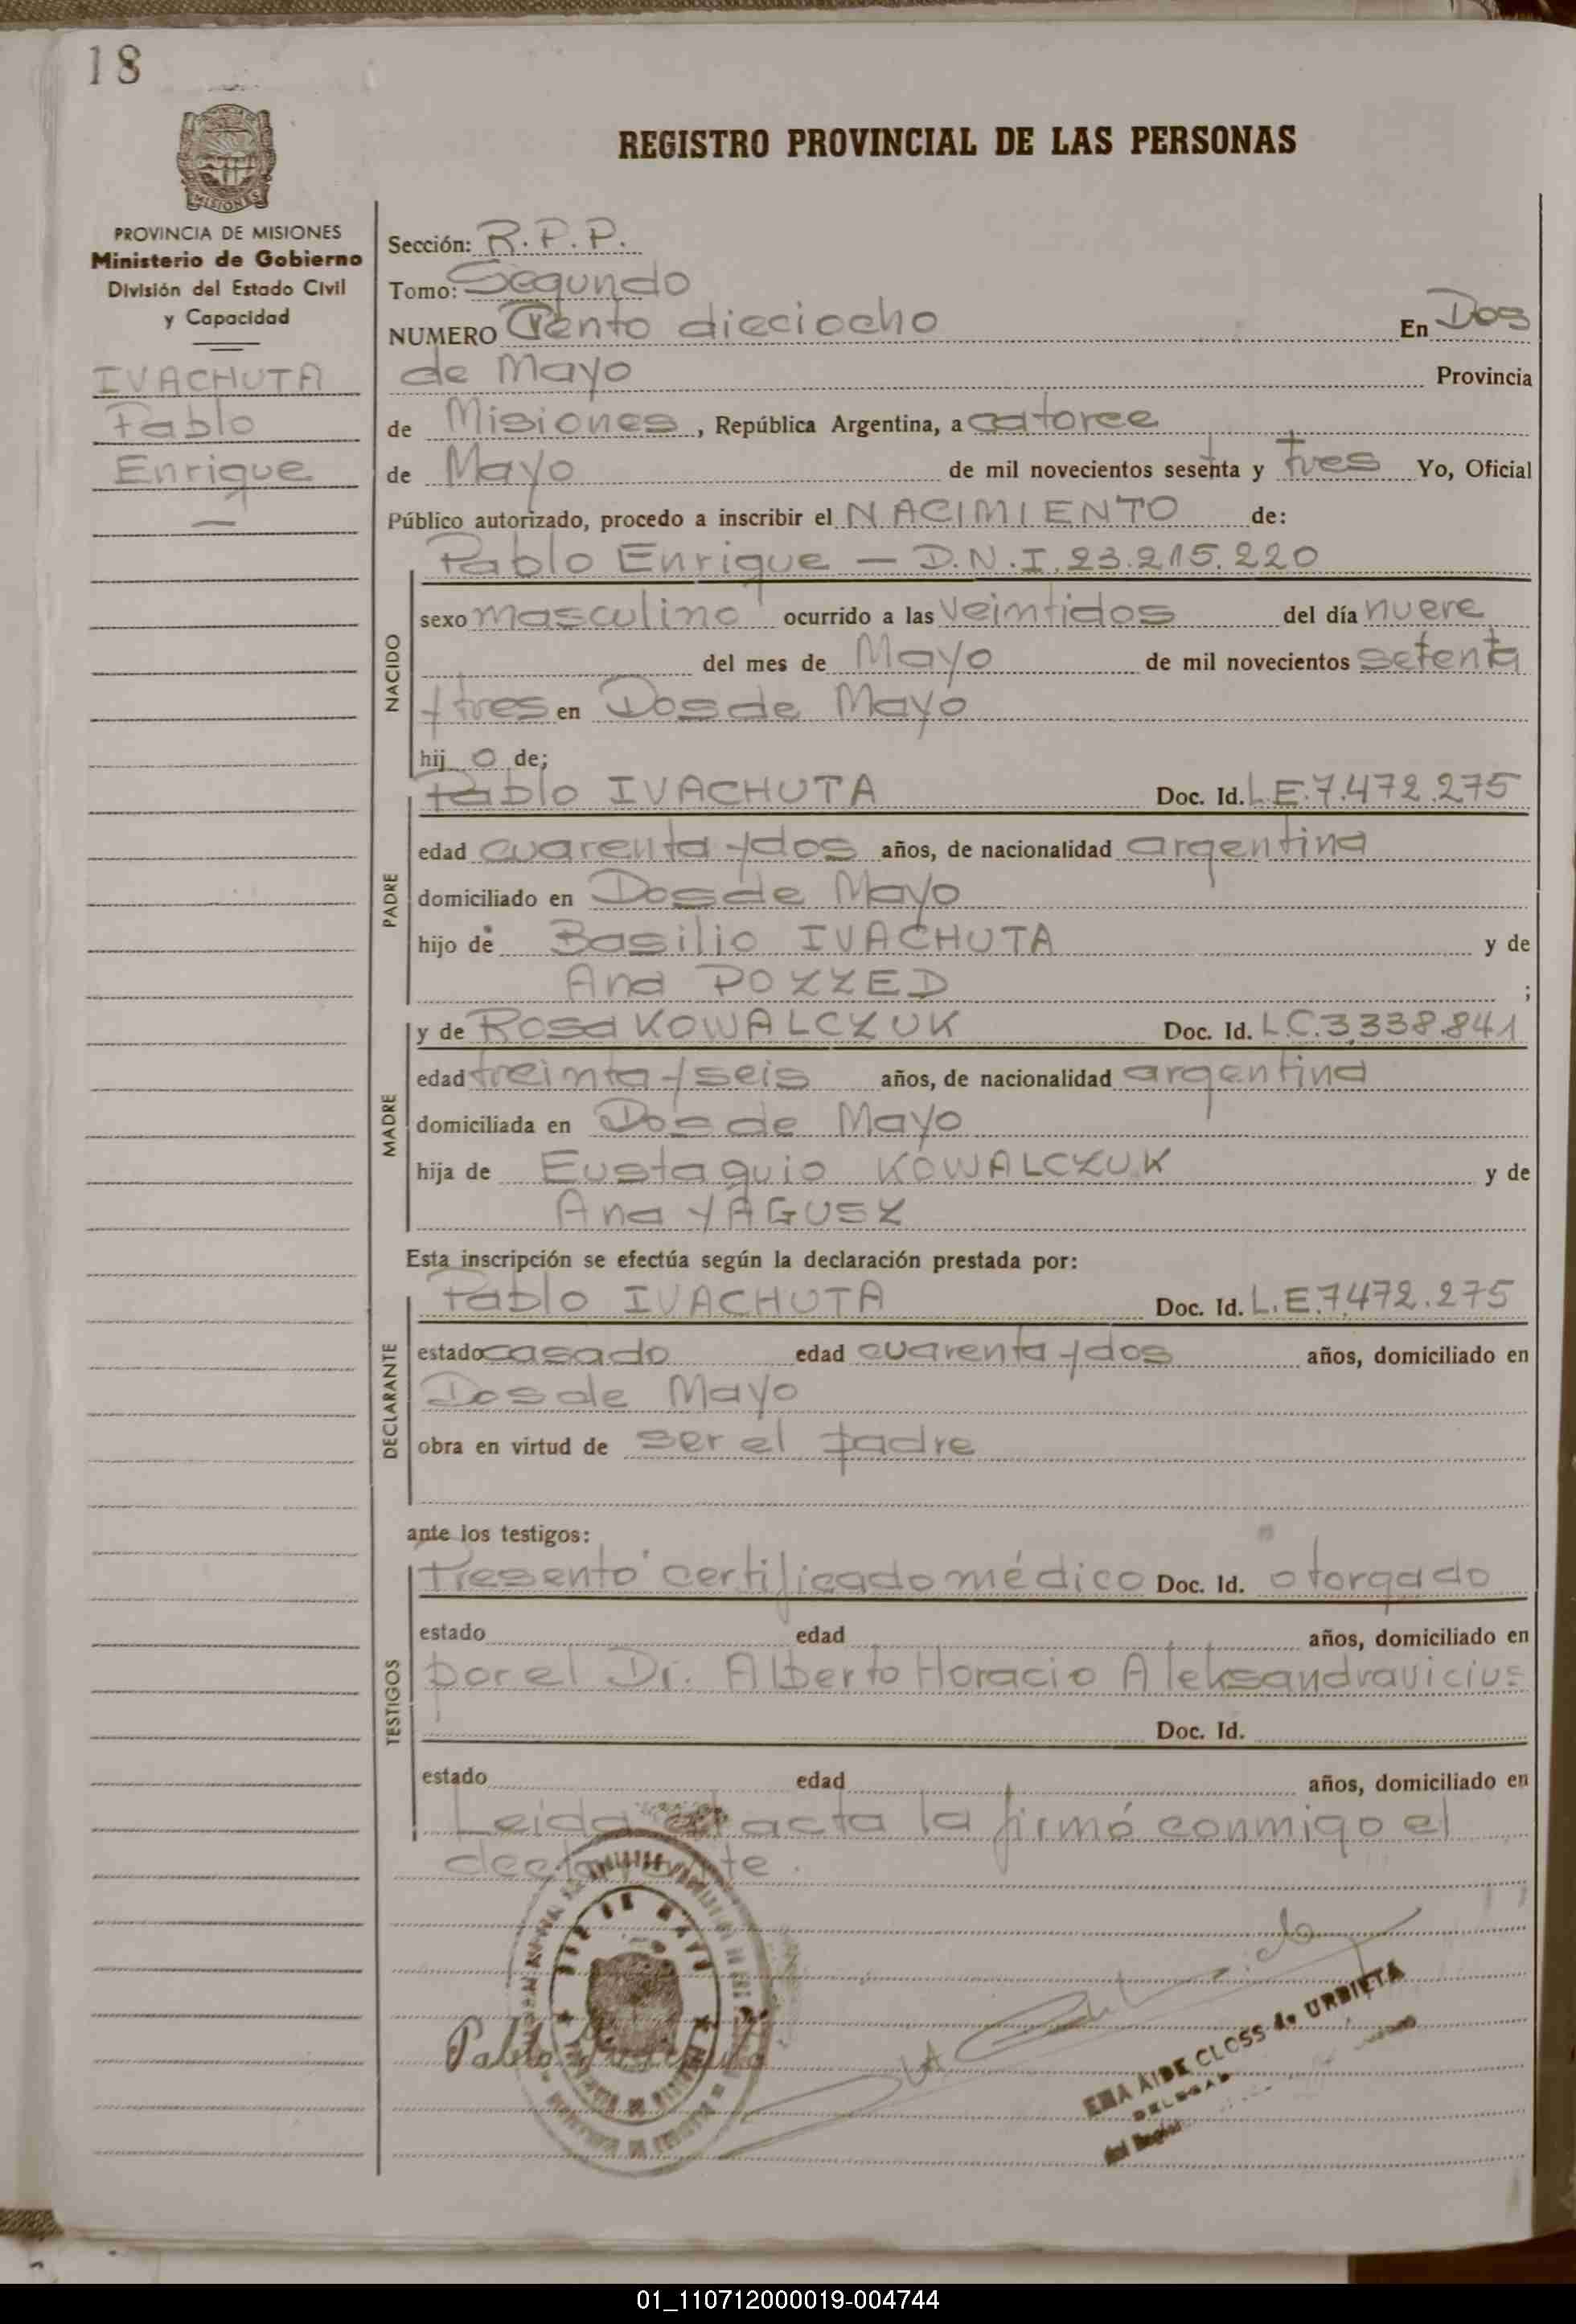 18
REGISTRO PROVINCIAL DE LAS PERSONAS
MISIONES
PROVINCIA DE MISIONES
Ministerio de Gobierno
División del Estado Civil
y Capacidad
IVACHUTA
Pablo
Enrique
Sección: R.P.P.
Tomo: Segundo
NUMERO Ciento dieciocho En Dos
de Mayo Provincia
de Misiones, República Argentina, a catorce
de Mayo de mil novecientos sesenta y tres Yo, Oficial
Público autorizado, procedo a inscribir el NACIMIENTO de:
Pablo Enrique — D.N.I. 23.215.220
NACIDO
sexo masculino ocurrido a las veintidos del día nueve
del mes de Mayo de mil novecientos setenta
y tres en Dos de Mayo
hij o de;
PADRE
Pablo IVACHUTA Doc. Id. L.E. 7.472.275
edad cuarenta y dos años, de nacionalidad argentina
domiciliado en Dos de Mayo
hijo de Basilio IVACHUTA y de
Ana POZZED ;
MADRE
y de Rosa KOWALCZUK Doc. Id. L.C. 3.338.841
edad treinta y seis años, de nacionalidad argentina
domiciliada en Dos de Mayo
hija de Eustaquio KOWALCZUK y de
Ana YAGUSZ
Esta inscripción se efectúa según la declaración prestada por:
DECLARANTE
Pablo IVACHUTA Doc. Id. L.E. 7.472.275
estado casado edad cuarenta y dos años, domiciliado en
Dos de Mayo
obra en virtud de ser el padre
ante los testigos:
TESTIGOS
Presentó certificado médico Doc. Id. otorgado
estado edad años, domiciliado en
por el Dr. Alberto Horacio Aleksandravicius
Doc. Id.
estado edad años, domiciliado en
Leida el acta la firmó conmigo el
declarante.
DOS DE MAYO
Pablo
EMA AIDE CLOSS de URBIETA
DELEGAD
del Regis
01_110712000019-004744